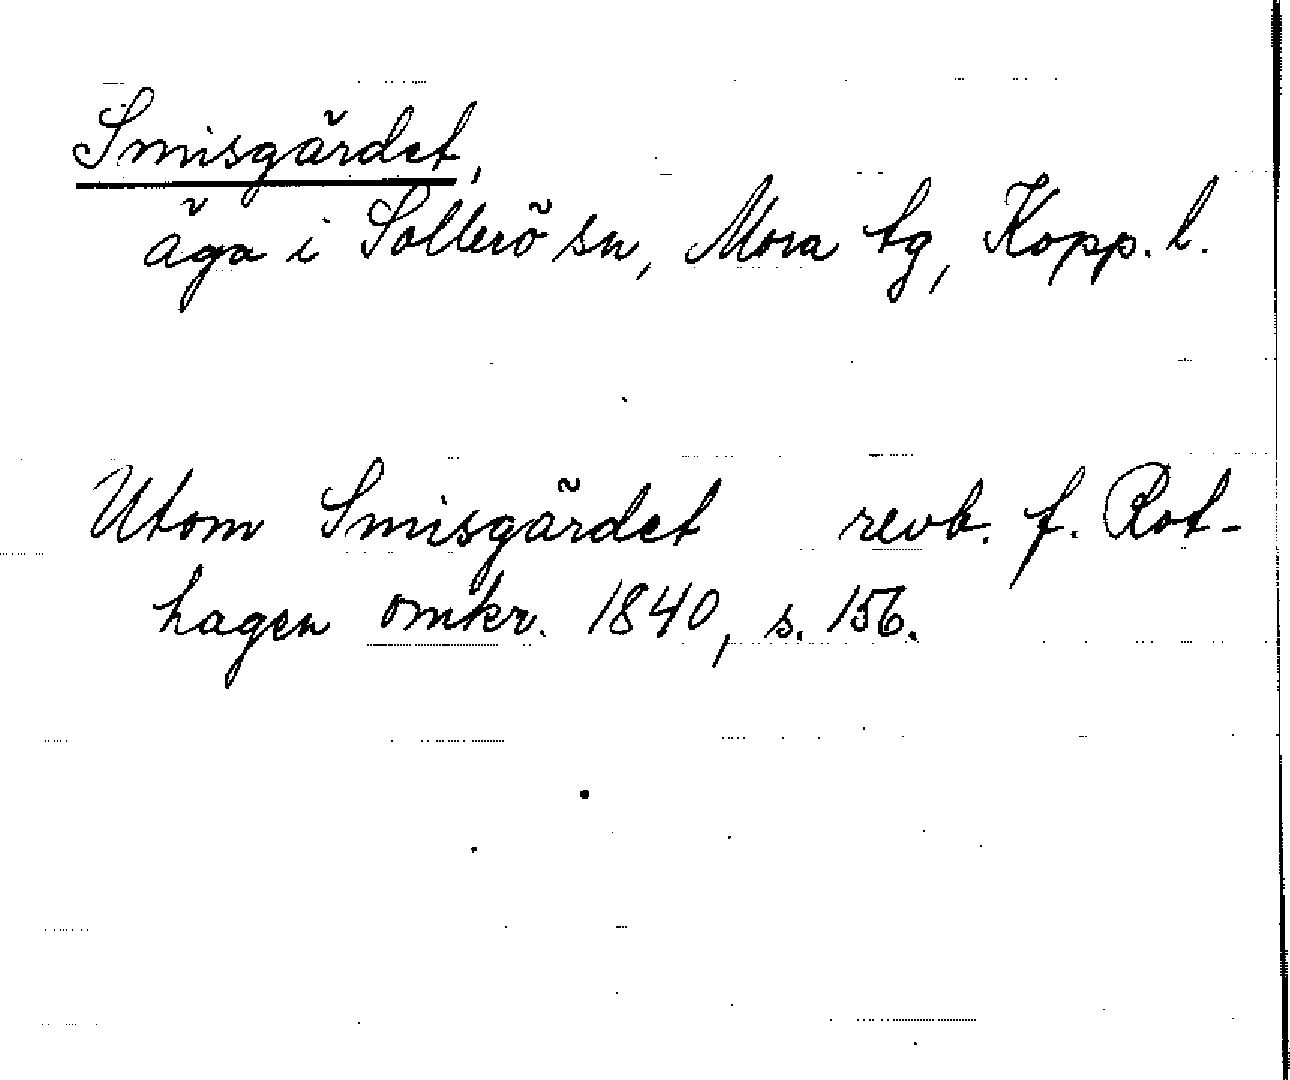 Smisgärdet,
äga i Sollerö sn, Mora tg, Kopp. l.
Utom Smisgärdet revb. f. Rot-
hagen omkr. 1840, s. 156.